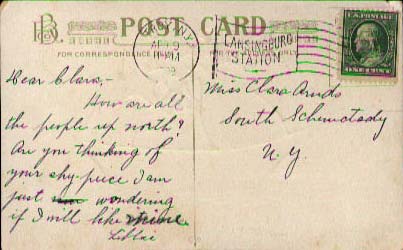 POST CARD
FOR CORRESPONDENCE
AP 9
LANSINGBURG
STATION
U.S. POSTAGE
ONE CENT
Dear Clara,-
How are all
the people up north?
Are you thinking of
your shy-piece I am
just wondering
if I will like mine
Miss Clara
South Schenectady
N.Y.